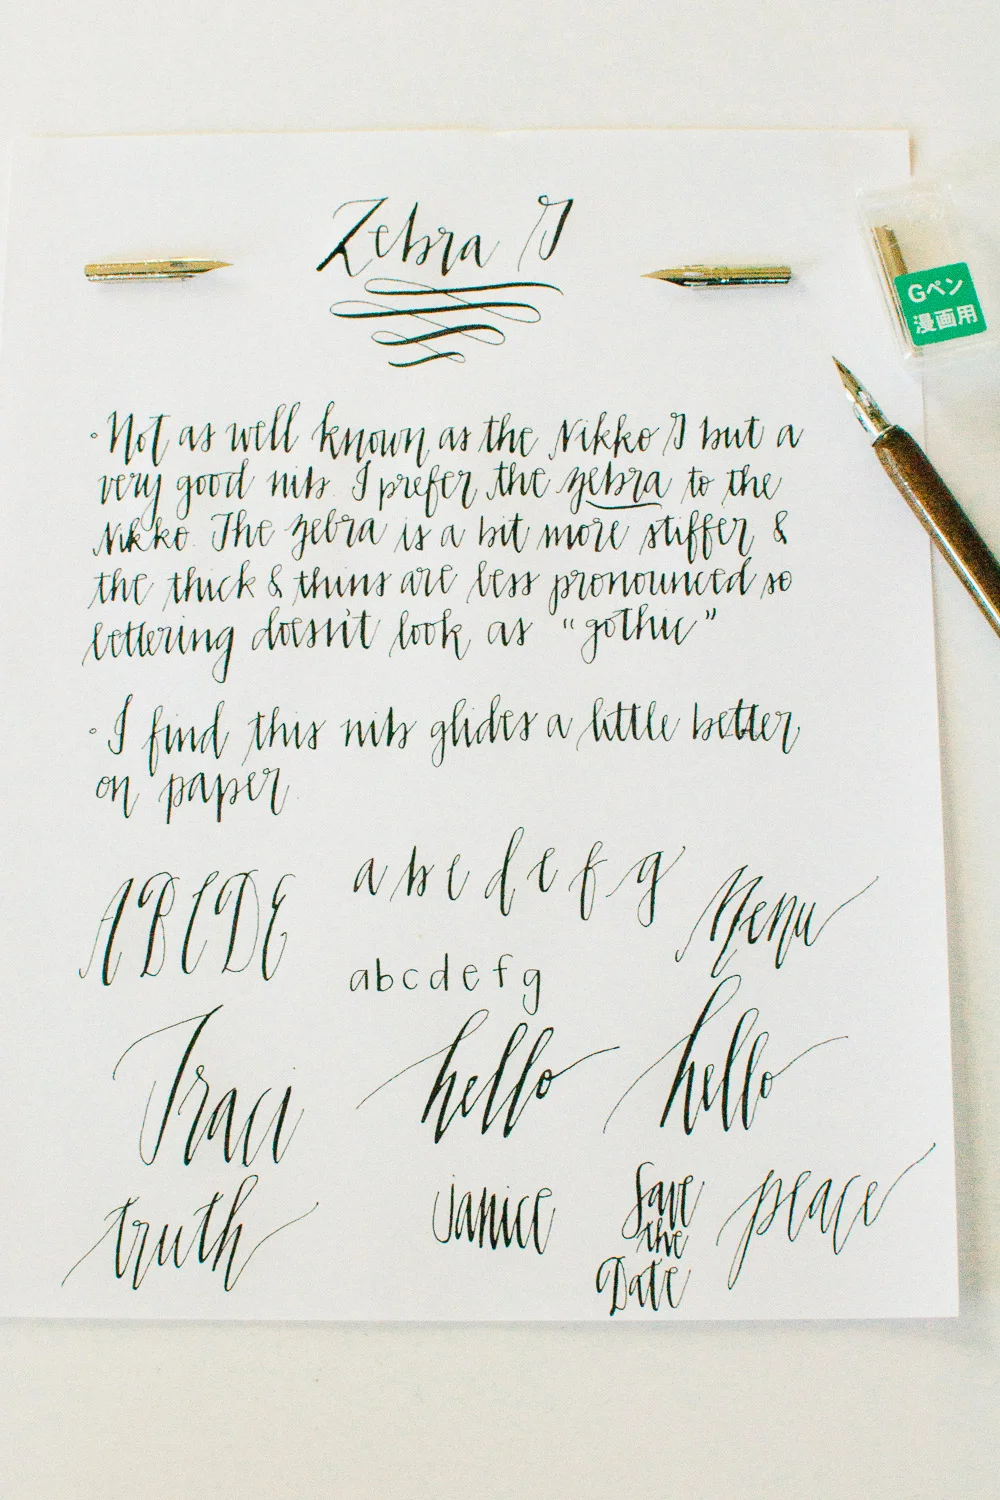 Zebra G
Gペン
漫画用
• Not as well known as the Nikko G but a
very good nib. I prefer the zebra to the
Nikko. The zebra is a bit more stiffer &
the thick & thins are less pronounced so
lettering doesn't look as "gothic"
• I find this nib glides a little better
on paper.
a b c d e f g
A B C D E
Menu
a b c d e f g
Traci
hello
hello
truth
Janice
Save
the
Date
peace